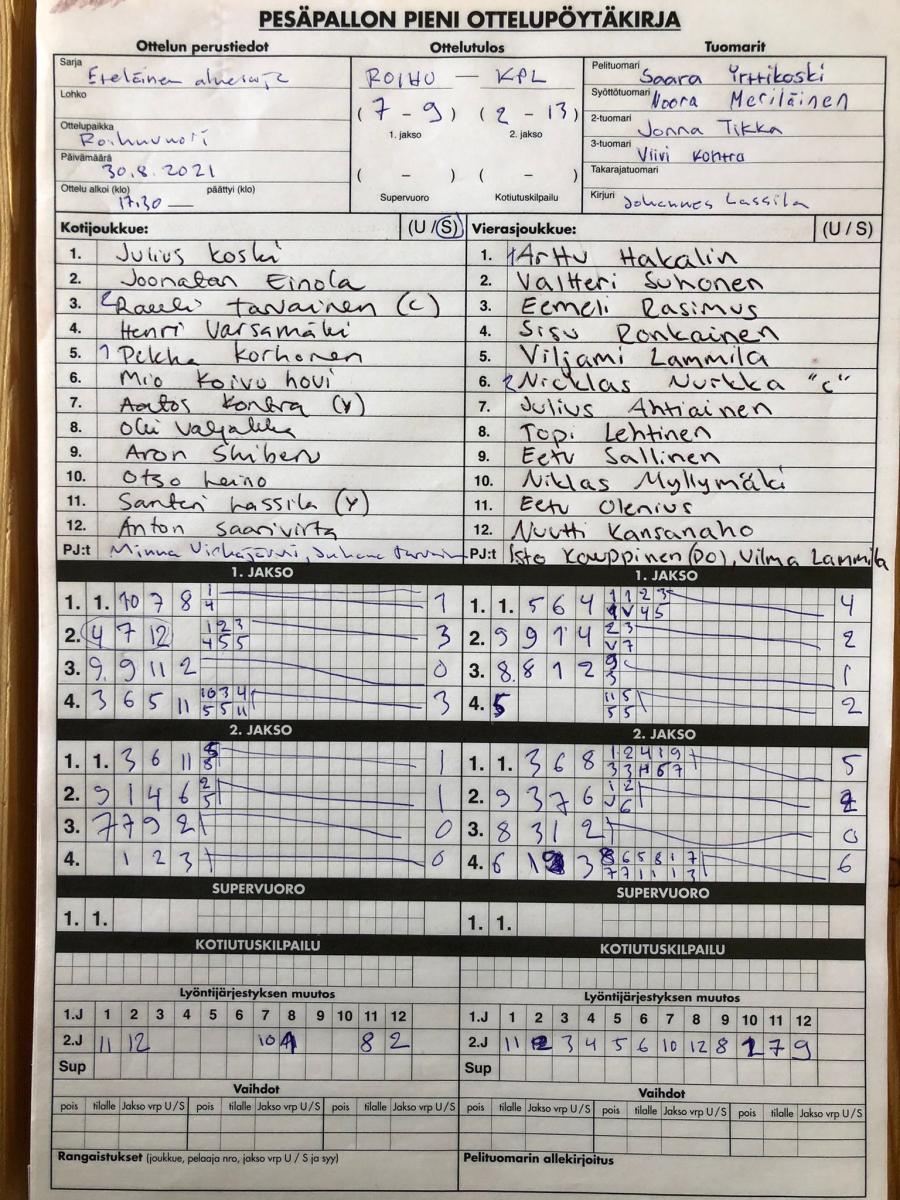 PESÄPALLON PIENI OTTELUPÖYTÄKIRJA
Ottelun perustiedot
Sarja
Eteläinen aluesarja
Lohko
Ottelupaikka
Roihuvuori
Päivämäärä
30.8.2021
Ottelu alkoi (klo) päättyi (klo)
17.30 —
Ottelutulos
ROIHU — KPL
(7 - 9) (2 - 13)
1. jakso 2. jakso
( - ) ( - )
Supervuoro Kotiutuskilpailu
Tuomarit
Pelituomari Saara Yrttikoski
Syöttötuomari Noora Meriläinen
2-tuomari Jonna Tikka
3-tuomari Viivi Kontra
Takarajatuomari
Kirjuri Johannes Lassila
Kotijoukkue: (U / S)
1. Julius Koski
2. Joonatan Einola
3. 2 Rauli Tarvainen (C)
4. Henri Varsamäki
5. 1 Pekka Korhonen
6. Mio Koivuhovi
7. Aatos Kontra (Y)
8. Olli Valjakka
9. Aron
10. Otso Leino
11. Santeri Lassila (Y)
12. Anton Saarivirta
PJ:t Minna
Vierasjoukkue: (U / S)
1. 1 Arttu Hakalin
2. Valtteri Suhonen
3. Eemeli Rasimus
4. Sisu Ronkainen
5. Viljami Lammila
6. 2 Nicklas Nurkka "c"
7. Julius Ahtiainen
8. Topi Lehtinen
9. Eetu Sallinen
10. Niklas Myllymäki
11. Eetu Olenius
12. Nuutti Kansanaho
PJ:t Isto Kauppinen (PO), Vilma Lammila
1. JAKSO
1. 1. 10 7 8 1 1
4
2. 4 7 12 1 2 3 3
4 5 5
3. 9. 9 11 2 0
4. 3 6 5 11 10 3 4 3
5 5 11
2. JAKSO
1. 1. 3 6 11 5 1
8
2. 9 1 4 6 2 1
5
3. 7 7 9 2 0
4. 1 2 3 0
SUPERVUORO
1. 1.
KOTIUTUSKILPAILU
1. JAKSO
1. 1. 5 6 4 1 1 2 3 4
V 4 5
2. 9 9 1 4 2 3 2
V 7
3. 8. 8 1 2 9 1
3
4. 5 11 5 2
5 5
2. JAKSO
1. 1. 3 6 8 1 2 4 1 9 5
3 3 H 6 7
2. 9 3 7 6 1 2 2
V 6
3. 8 3 1 2 0
4. 6 1 3 8 6 5 8 1 7 6
7 7 1 1 1 3
SUPERVUORO
1. 1.
KOTIUTUSKILPAILU
Lyöntijärjestyksen muutos
1.J 1 2 3 4 5 6 7 8 9 10 11 12
2.J 11 12 10 8 2
Sup
Lyöntijärjestyksen muutos
1.J 1 2 3 4 5 6 7 8 9 10 11 12
2.J 11 2 3 4 5 6 10 12 8 1 7 9
Sup
Vaihdot
pois tilalle Jakso vrp U / S pois tilalle Jakso vrp U / S pois tilalle Jakso vrp U / S
Vaihdot
pois tilalle Jakso vrp U / S pois tilalle Jakso vrp U / S pois tilalle Jakso vrp U / S
Rangaistukset (joukkue, pelaaja nro, jakso vrp U / S ja syy)
Pelituomarin allekirjoitus